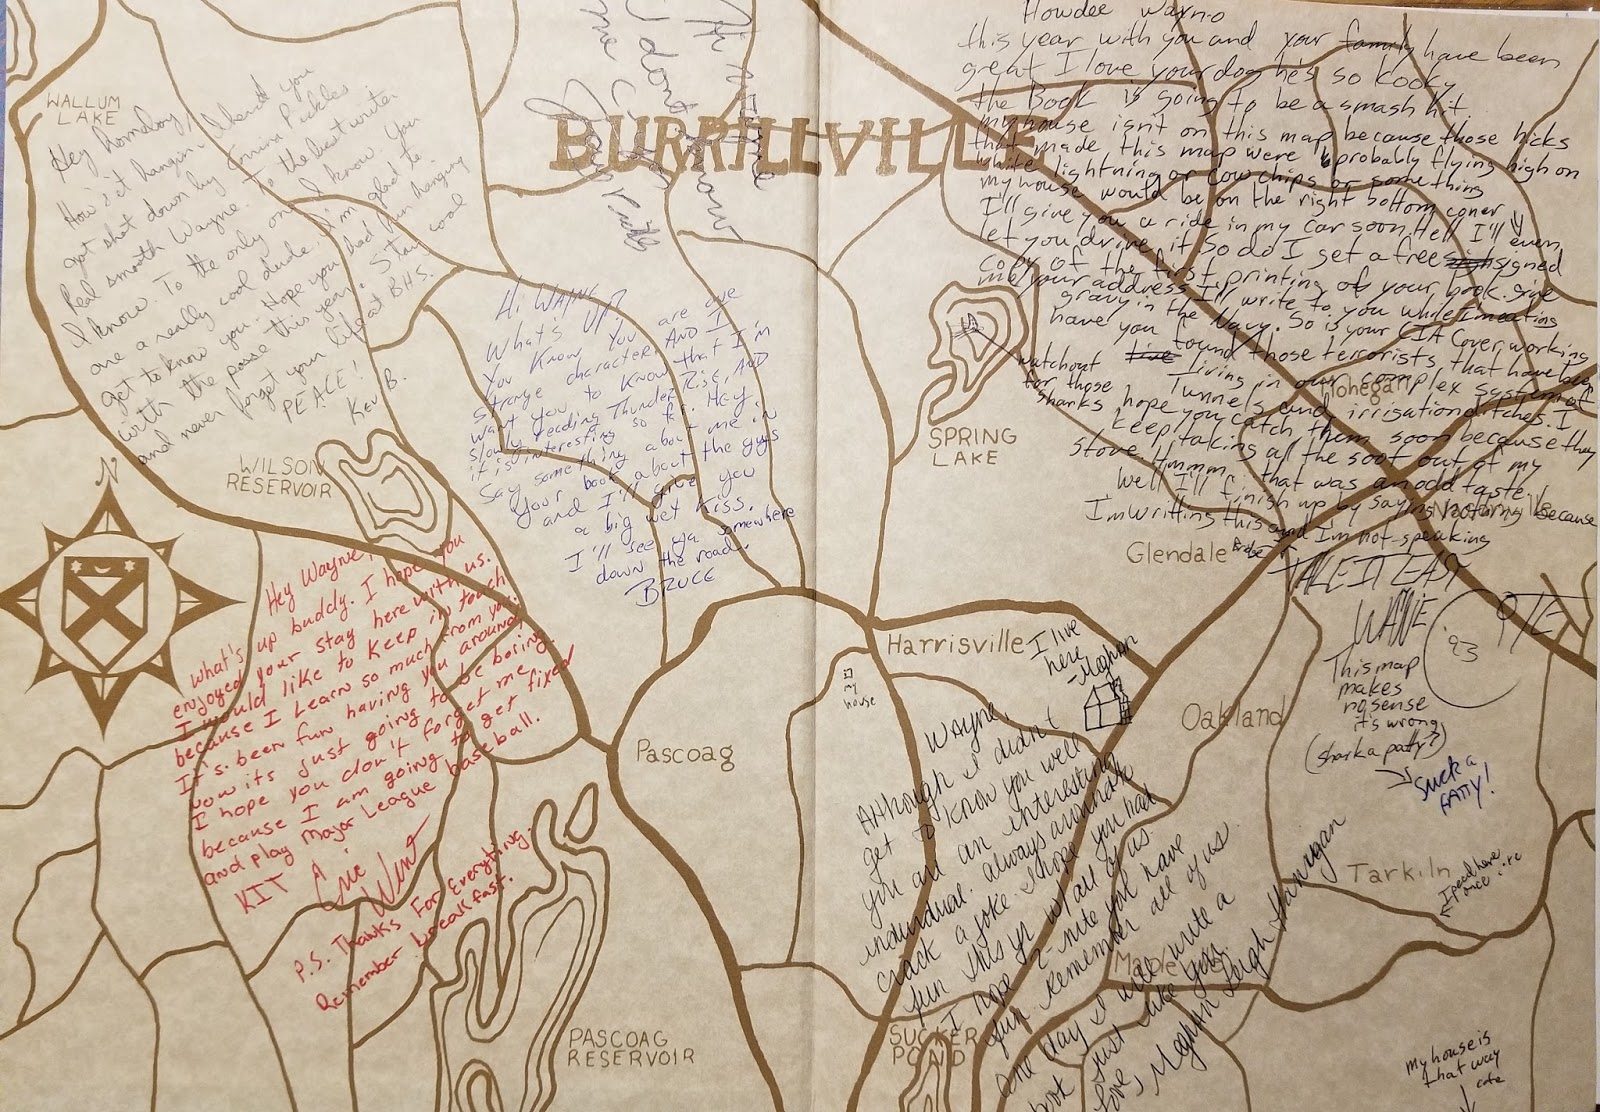 BURRILLVILLE
WALLUM
LAKE
Hey homeboy,
How's it hangin, I heard you
got shot down by Pickles
Real smooth Wayne. To the best writer
I know. To the only one I know. You
are a really cool dude. I'm glad to
get to know you. Hope you had fun hanging
with the posse this year. Stay cool
and never forget your life at BHS.
PEACE!
Kev B.
WILSON
RESERVOIR
N
Hi WAYNE
What's UP?
You Know You are we
strange characters AND I
want you to Know that I'm
slowly reading Thunder Rise, AND
it is interesting so far. HEY,
Say something about me in
your book about the guys
and I'll give you
a big wet Kiss.
I'll see ya somewhere
down the road.
BRUCE
Hey Wayne,
What's up buddy. I hope you
enjoyed your stay here with us.
I would like to keep in touch
because I Learn so much from you.
It's been fun having you around,
now its just going to be boring.
I hope you don't forget me
because I am going to get fixed
and play Major League baseball.
KIT
P.S. Thanks For Everything.
Remember breakfast.
Hi Wayne
I don't know
Howdee Wayno
this year with you and your family have been
great I love your dog he's so kooky
the Book is going to be a smash hit
my house isn't on this map because those hicks
that made this map were probably flying high on
white lightning or cow chips or something
my house would be on the right bottom coner
I'll give you a ride in my car soon, Hell I'll even
let you drive it So do I get a free signed
copy of the first printing of your book. Give
me your address I'll write to you while I'm eating
gravy in the Navy. So is your CIA Cover working
have you found those terrorists that have been
living in our complex system of
Tunnels and irrisation ditches. I
hope you catch them soon because they
keep taking all the soot out of my
stove. Hmmm, that was an odd taste.
Well I'll finish up by saying nothing because
I'm writting this and I'm not speaking
TAKE IT EASY
watchout
for those
sharks
WANE
PYTE
93
This map
makes
nosense
it's wrong
(sharka patty?)
suck a
FATTY!
SPRING
LAKE
Mohegan
Nasonville
Glendale
Bridge
Harrisville
I live
here
-Meghan
my
house
Oakland
Pascoag
Wayne,
Although I didn't
get to know you well
you are an interesting
individual. Always around to
crack a joke. I hope you had
fun this yr w/ all of us.
I hope 2-nite you have
fun. Remember all of us.
One day I will write a
book just like you.
Love, Meghan Leigh Hannigan
Tarkiln
I peed here
once
Mapleville
PASCOAG
RESERVOIR
SUCKER
POND
my house is
that way